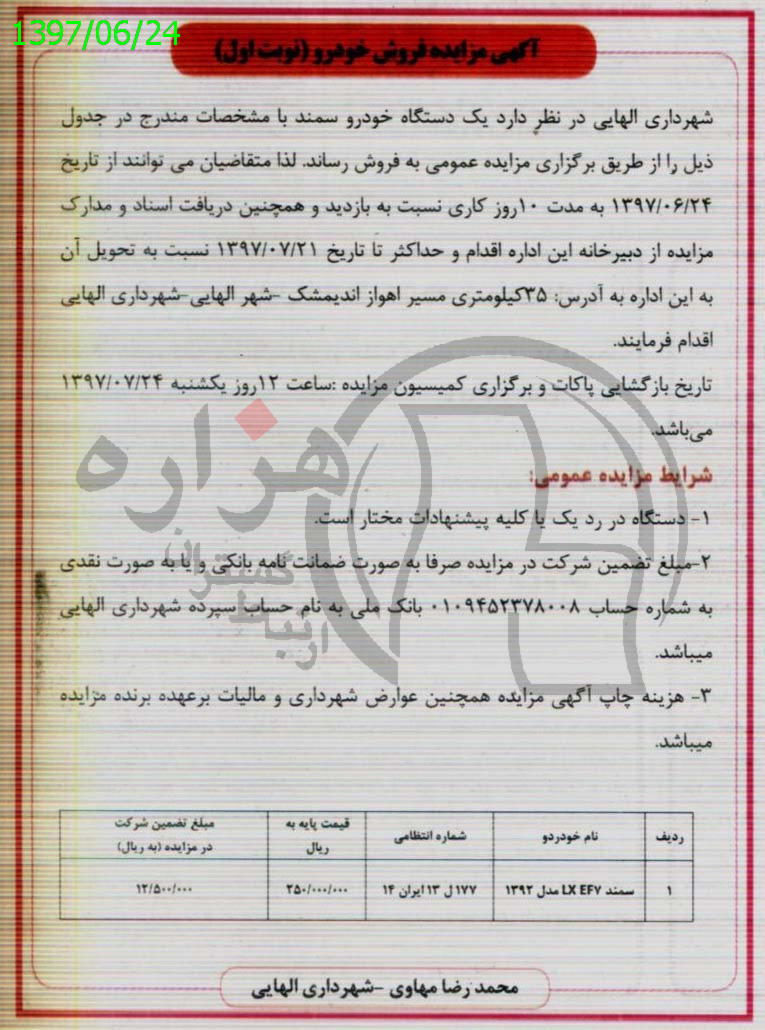 1397/06/24
آگهی مزایده فروش خودرو (نوبت اول)
شهرداری الهایی در نظر دارد یک دستگاه خودرو سمند با مشخصات مندرج در جدول
ذیل را از طریق برگزاری مزایده عمومی به فروش رساند. لذا متقاضیان می توانند از تاریخ
۱۳۹۷/۰۶/۲۴ به مدت ۱۰روز کاری نسبت به بازدید و همچنین دریافت اسناد و مدارک
مزایده از دبیرخانه این اداره اقدام و حداکثر تا تاریخ ۱۳۹۷/۰۷/۲۱ نسبت به تحویل آن
به این اداره به آدرس: ۳۵کیلومتری مسیر اهواز اندیمشک -شهر الهایی-شهرداری الهایی
اقدام فرمایند.
تاریخ بازگشایی پاکات و برگزاری کمیسیون مزایده :ساعت ۱۲روز یکشنبه ۱۳۹۷/۰۷/۲۴
می‌باشد.
شرایط مزایده عمومی:
۱- دستگاه در رد یک یا کلیه پیشنهادات مختار است.
۲-مبلغ تضمین شرکت در مزایده صرفا به صورت ضمانت نامه بانکی و یا به صورت نقدی
به شماره حساب ۰۱۰۹۴۵۲۳۷۸۰۰۸ بانک ملی به نام حساب سپرده شهرداری الهایی
میباشد.
۳- هزینه چاپ آگهی مزایده همچنین عوارض شهرداری و مالیات برعهده برنده مزایده
میباشد.
ردیف نام خودردو شماره انتظامی قیمت پایه به ریال مبلغ تضمین شرکت در مزایده (به ریال)
۱ سمند LX EF۷ مدل ۱۳۹۲ ۱۷۷ل ۱۳ ایران ۱۴ ۲۵۰/۰۰۰/۰۰۰ ۱۲/۵۰۰/۰۰۰
محمد رضا مهاوی -شهرداری الهایی
هزاره
ارتباط گستران